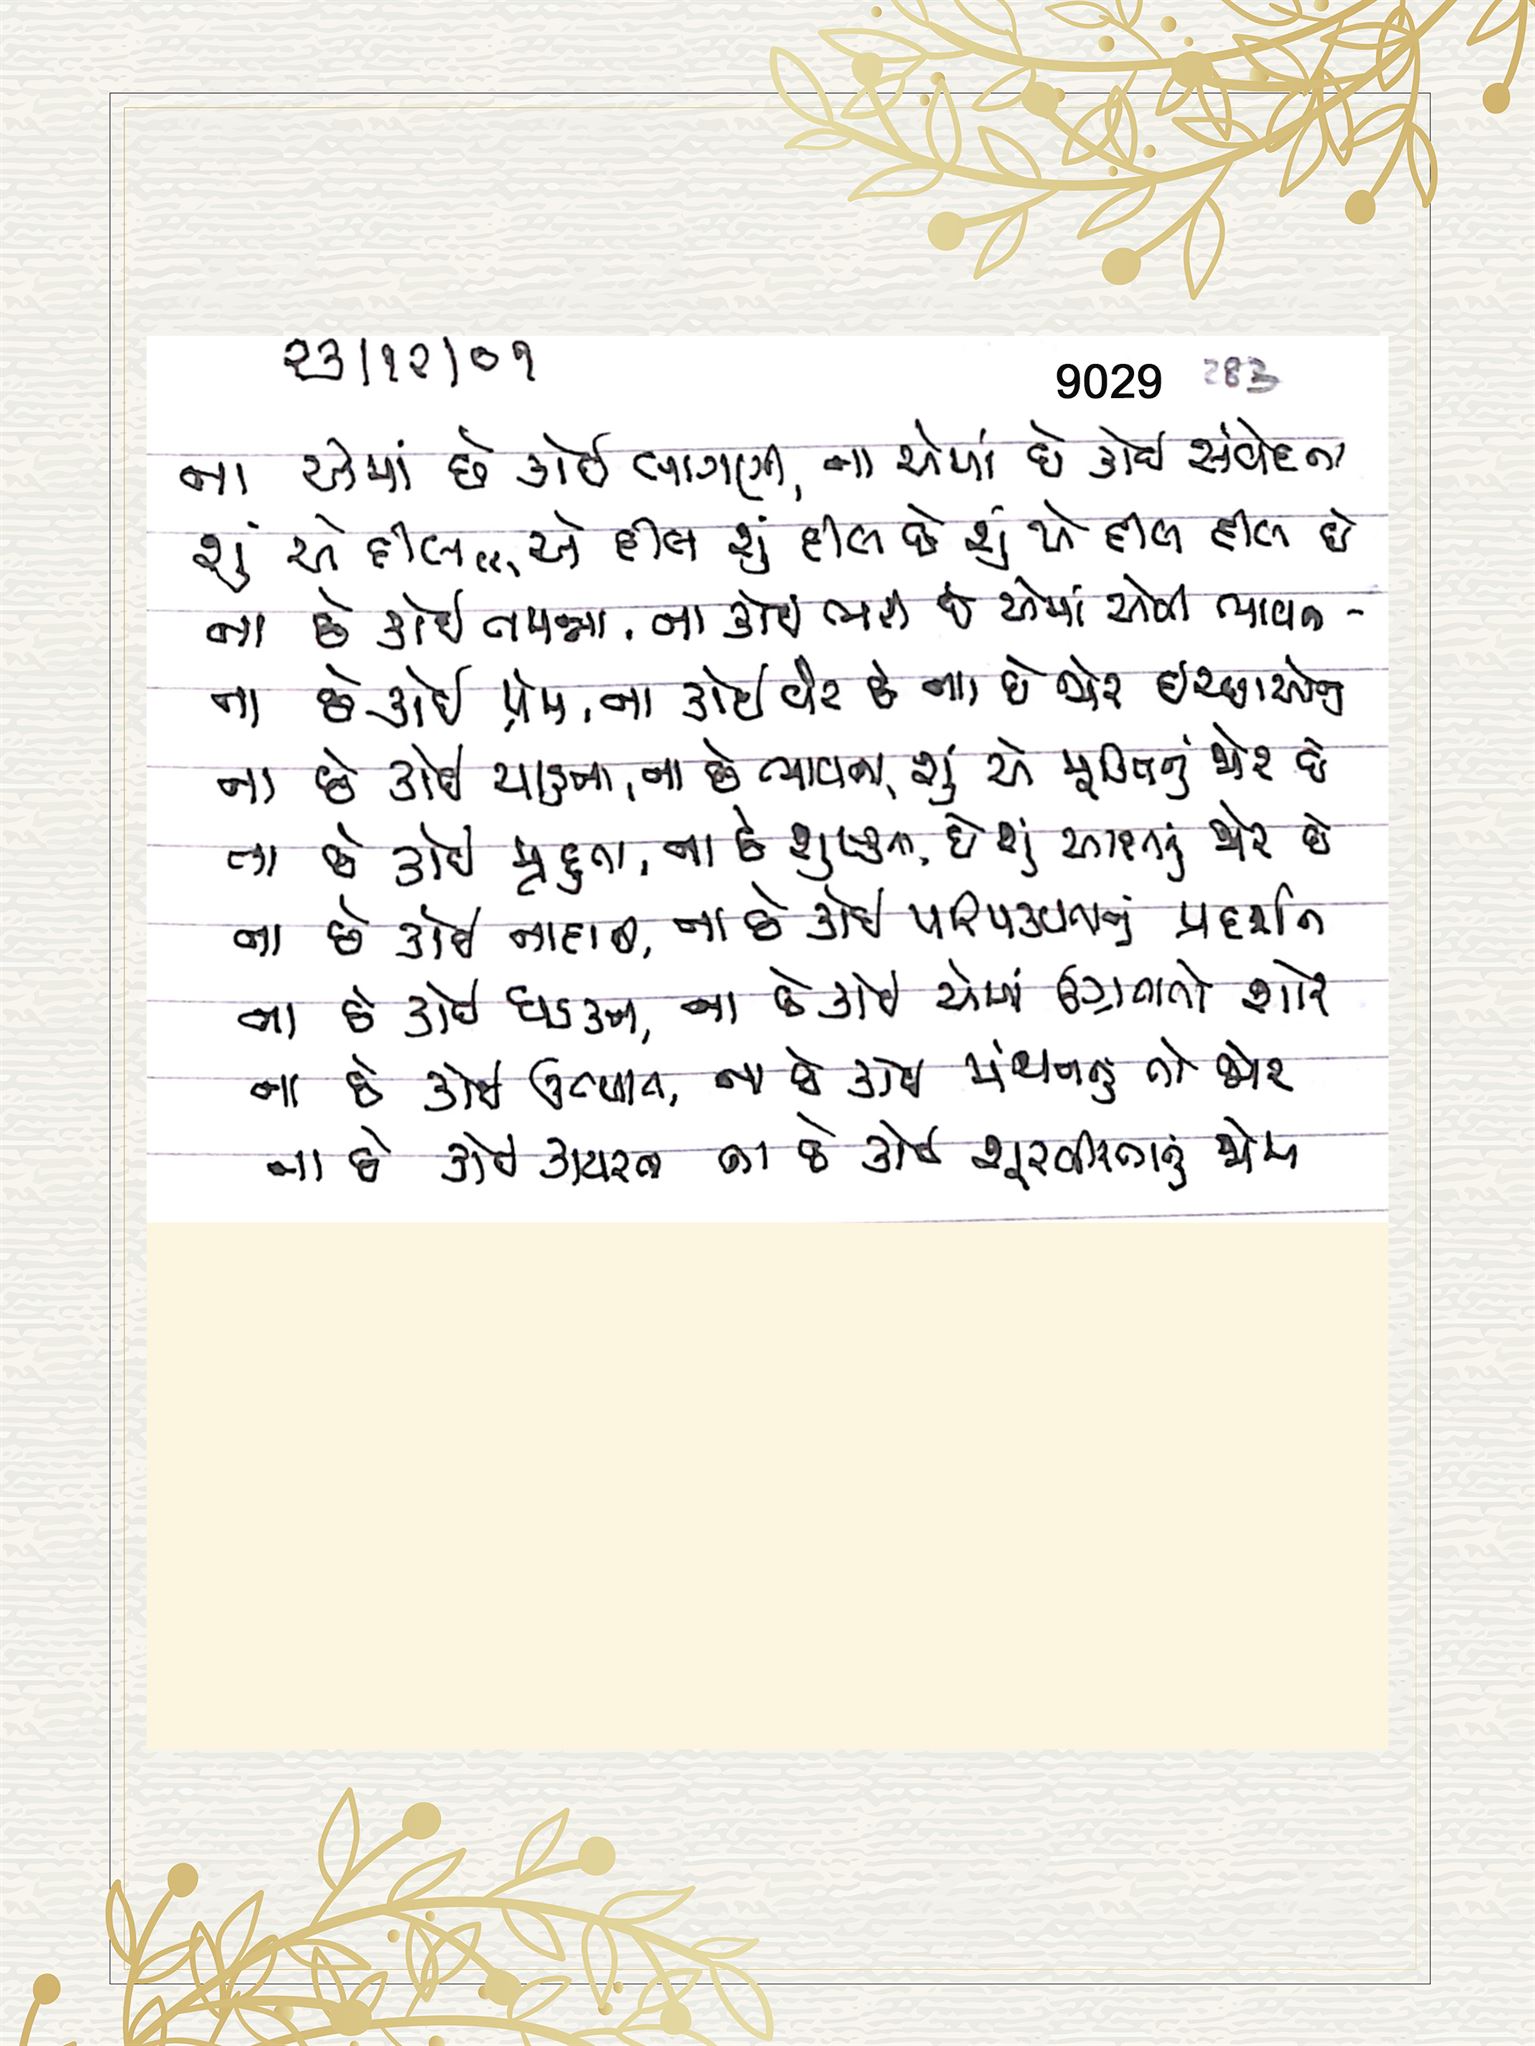 ૨૩/૧૨/૦૧
9029 283
ના એમાં છે કોઈ લાગણી, ના એમાં છે કોઈ સંવેદના
શું એ દીલ... એ દીલ શું દીલ છે શું એ દીલ દીલ છે
ના છે કોઈ તમન્ના, ના કોઈ ભરી છે એમાં એવી ભાવના
ના છે કોઈ પ્રેમ, ના કોઈ વૈર છે ના છે જોર ઇચ્છાઓનું
ના છે કોઈ યાચના, ના છે ભાવના, શું એ મૂડીનું જોર છે
ના છે કોઈ મૃદુતા, ના છે શુષ્કતા, છે શું આદતનું જોર છે
ના છે કોઈ નાદાની, ના છે કોઈ પરિપક્વતાનું પ્રદર્શન
ના છે કોઈ ધડકન, ના છે કોઈ એમાં ઉગ્રતાનો શોર
ના છે કોઈ ઉત્પાત, ના છે કોઈ મંથનનું તો જોર
ના છે કોઈ કાયરતા ના છે કોઈ શૂરવીરતાનું જોમ